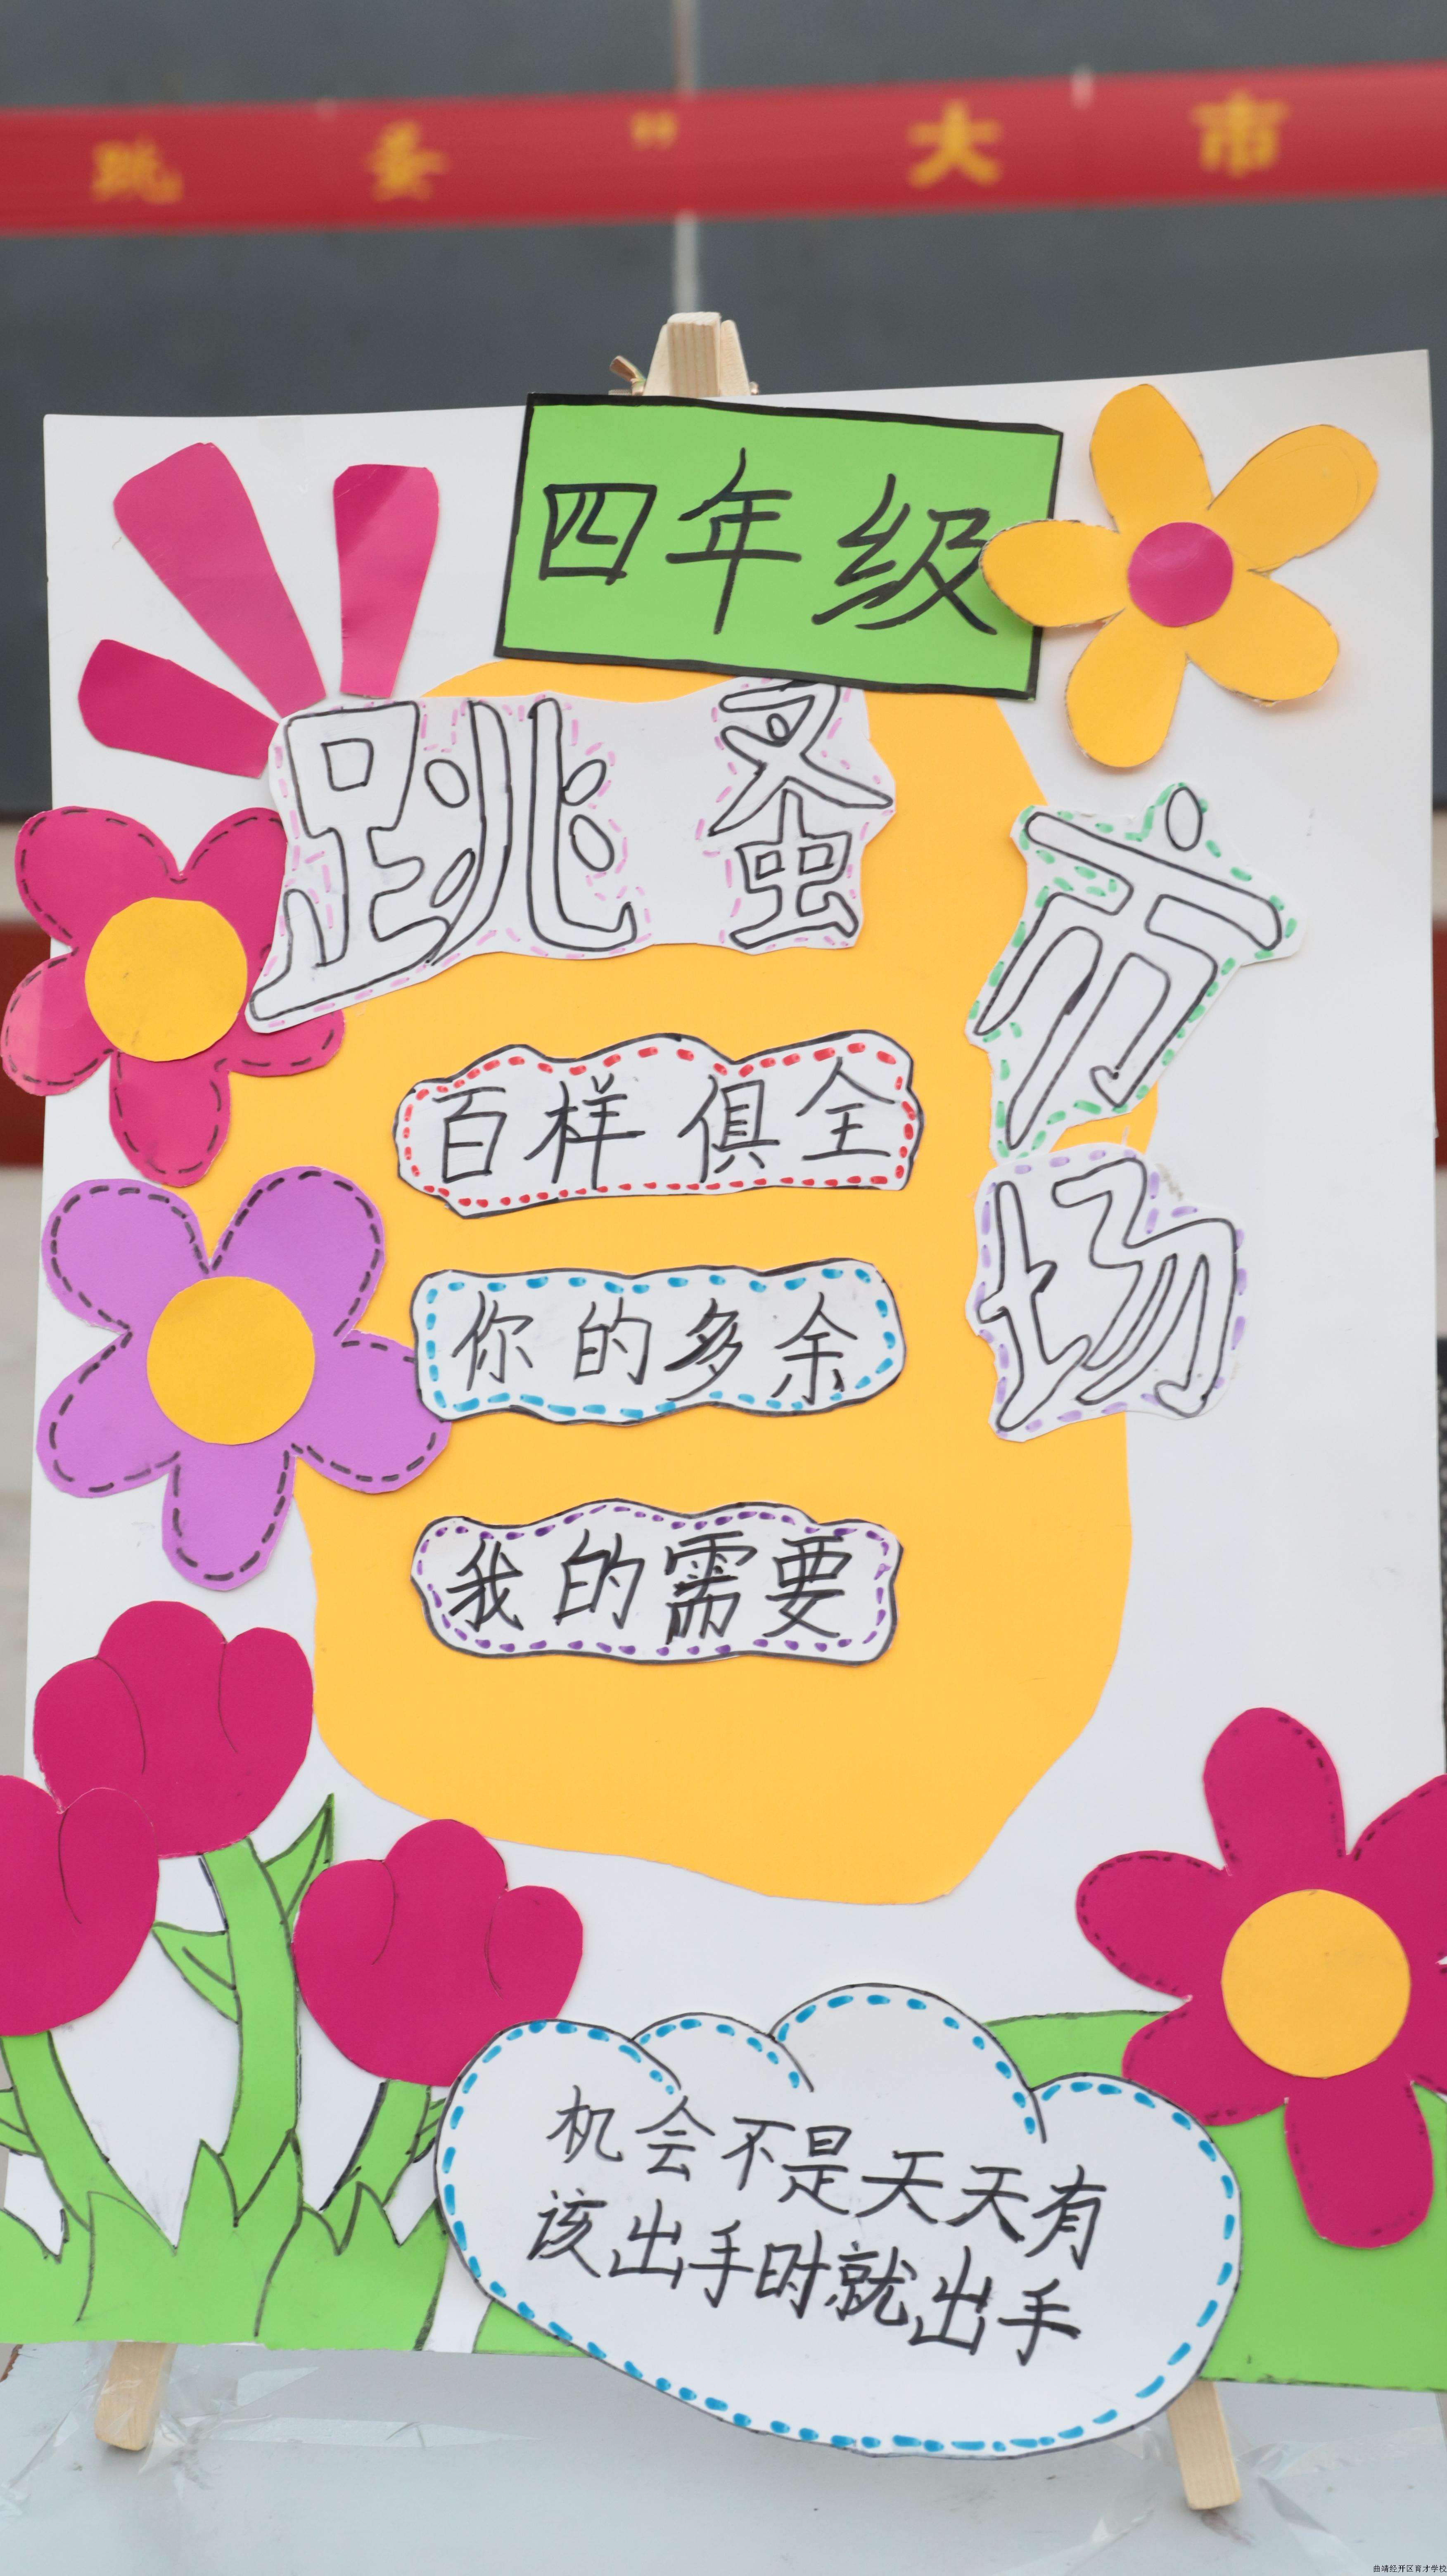 跳蚤”大市
四年级
跳蚤
市场
百样俱全
你的多余
我的需要
机会不是天天有
该出手时就出手
曲靖经开区育才学校